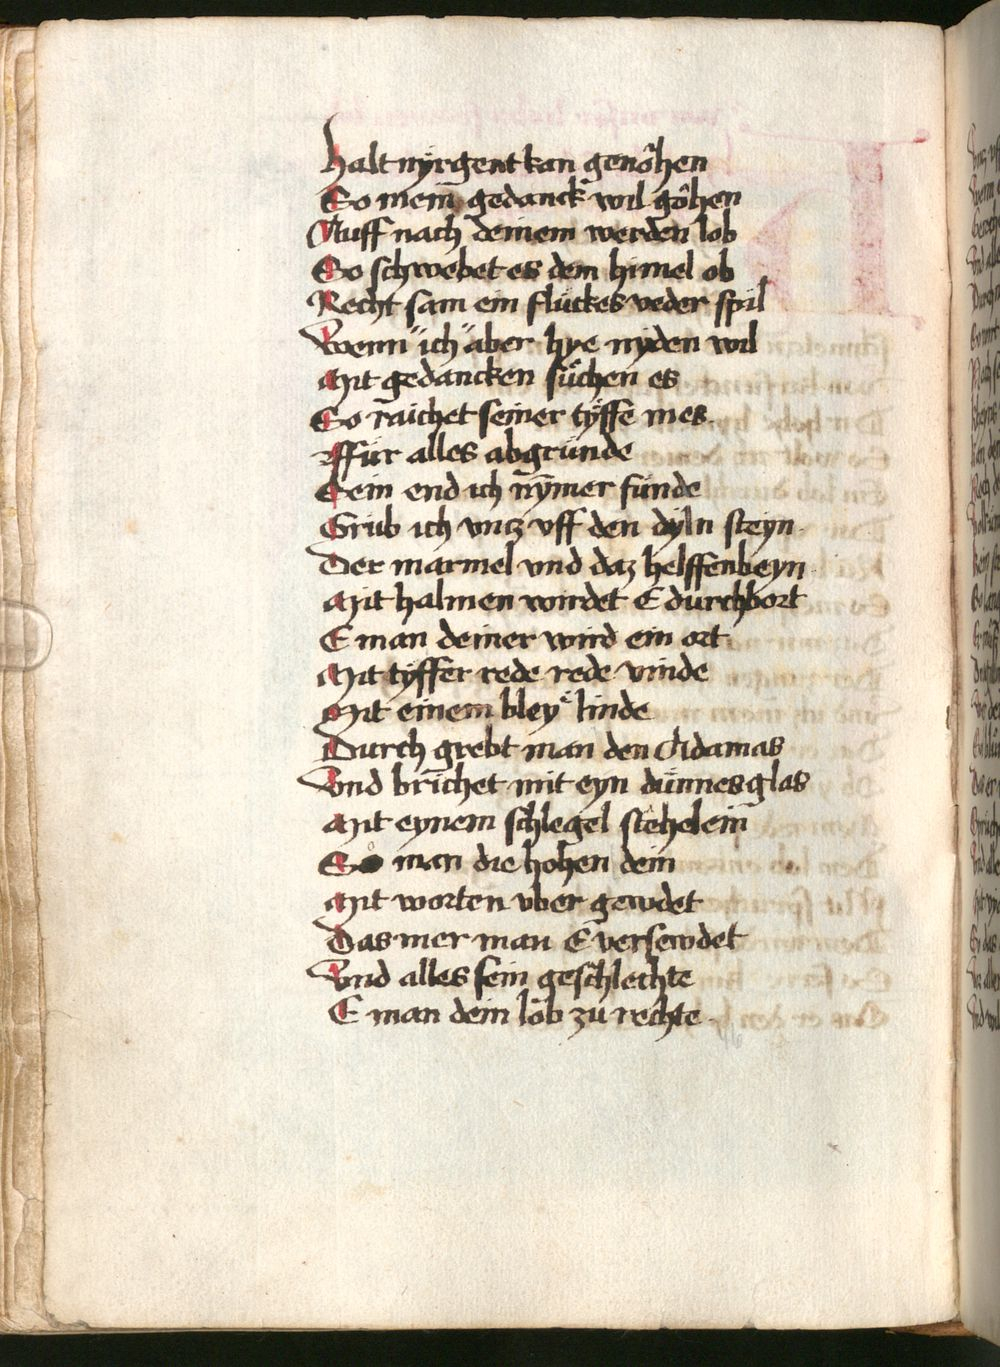 Halt nÿrgent kan genôhen
So mein gedanck wil gôhen
Auff nach deinem werden lob
So schwebet es dem himel ob
Recht sam ein flückes veder spil
Wenn ich aber hye nyden wil
Mit gedancken süchen es
So raichet seiner tÿffe mes
Für alles abgründe
Sein end ich nÿmer fünde
Grub ich vntz vff den dyln steyn
Der marmel vnd daz helffenbeyn
Mit halmen wirdet E durchbort
E man deiner wird ein ort
Mit tÿffer rede rede vinde
Mit einem bley linde
Durch grebt man den Adamas
Vnd brichet mit eyn dünnes glas
Mit eynem schlegel stehelein
So man die hohen dein
Mit worten vber gewdet
Das mer man E versewdet
Vnd alles sein geschlechte
E man dein lob zu rechte